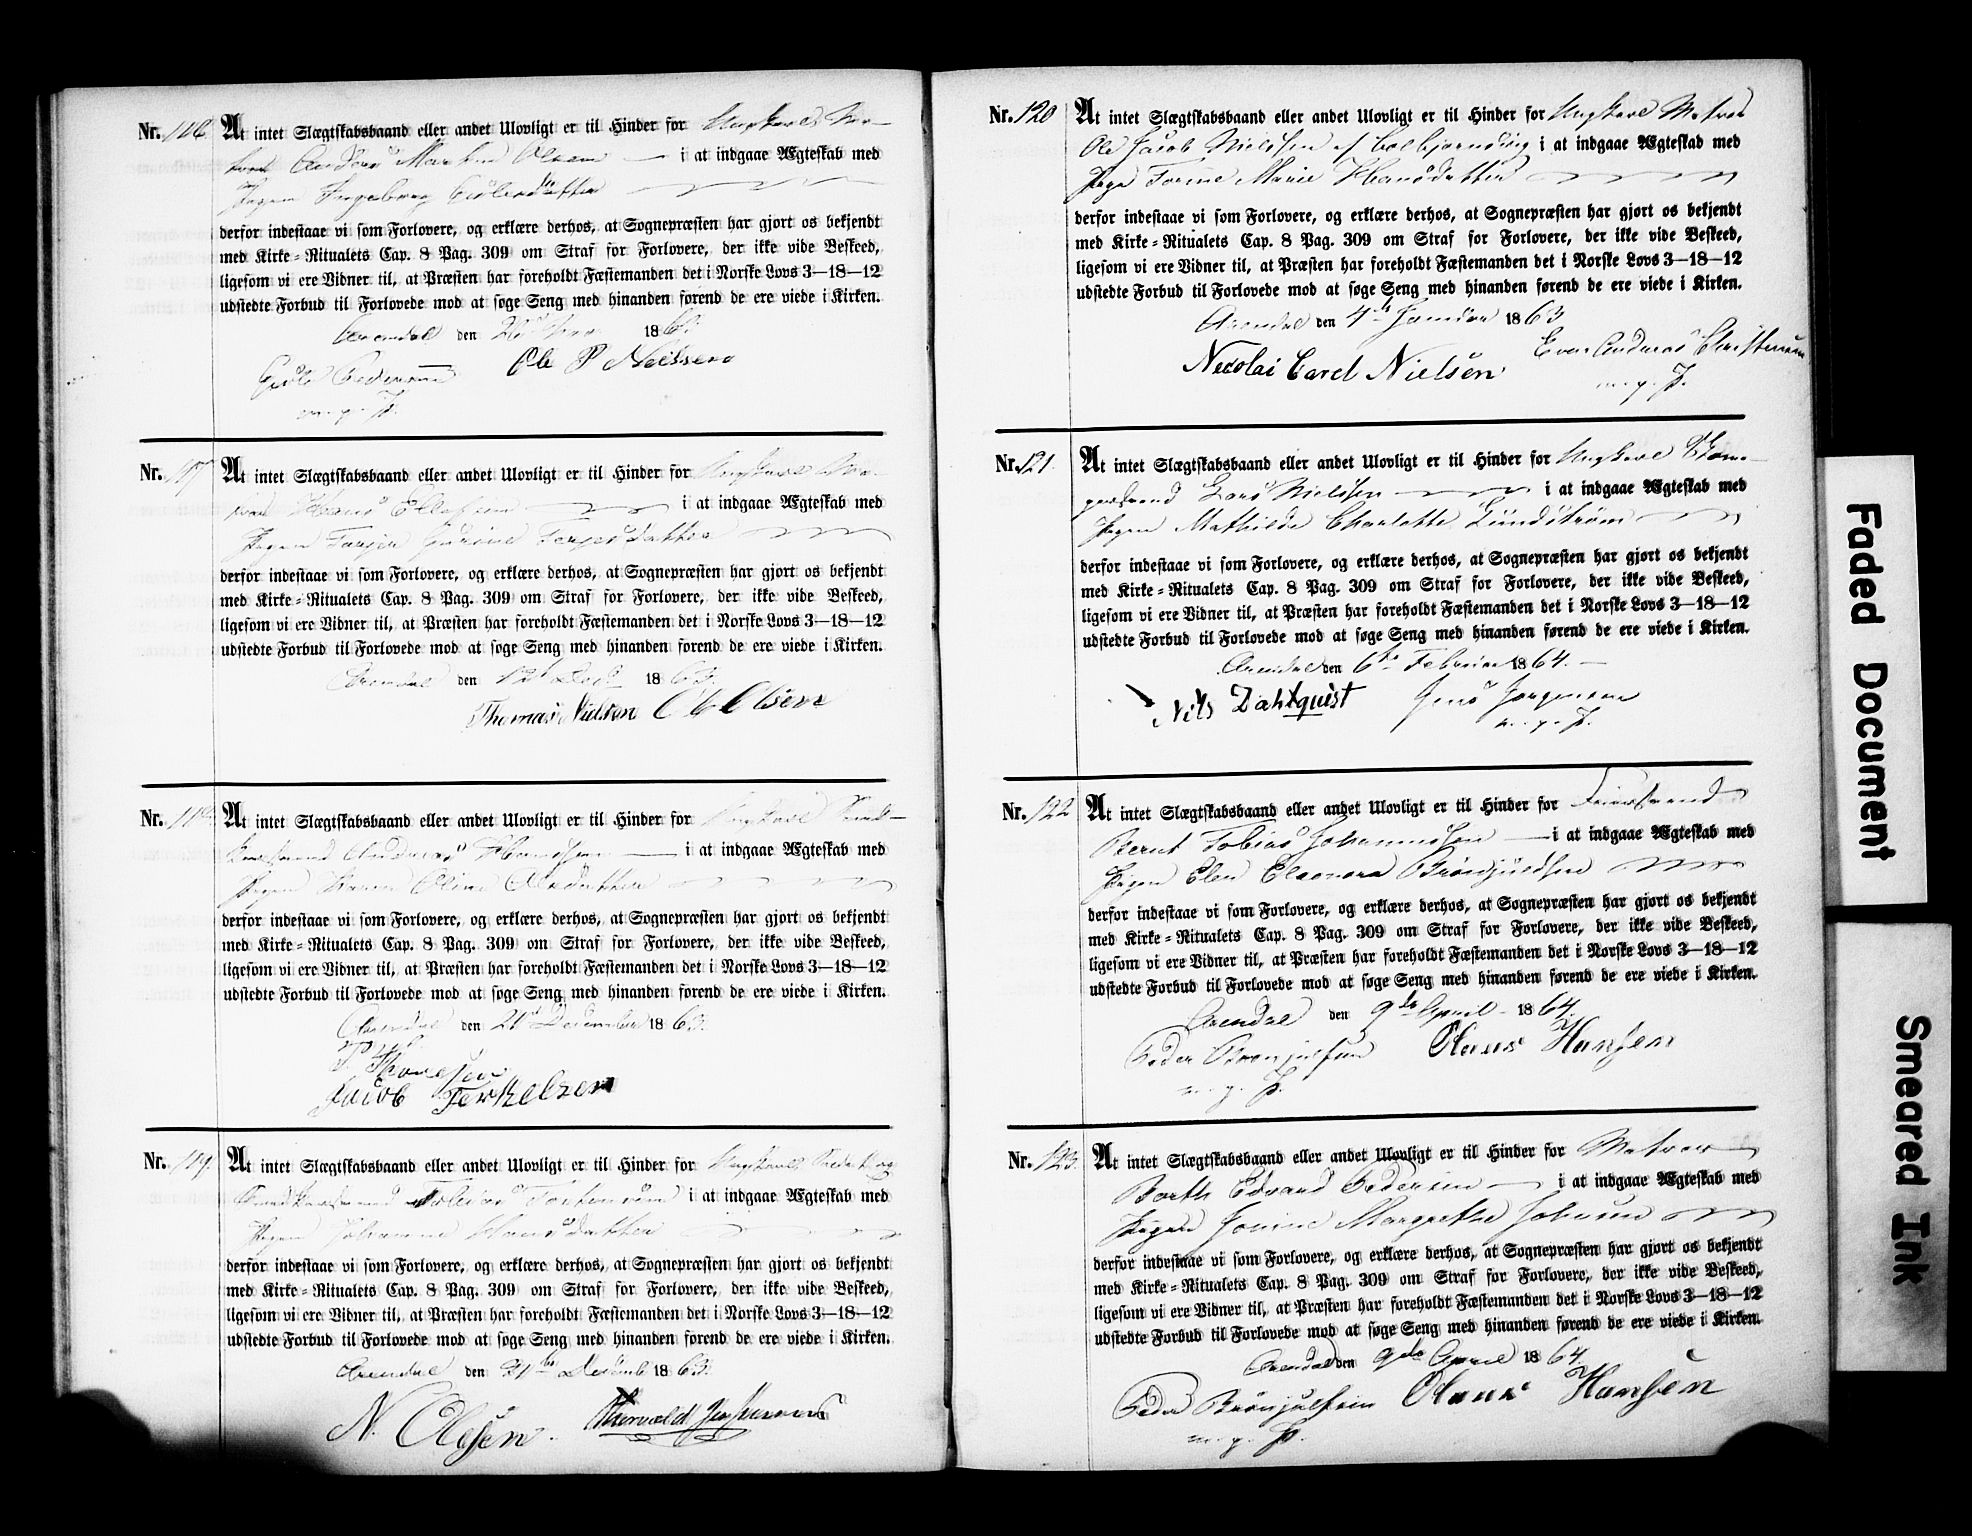 Nr. 116. At intet Slægtskabsbaand eller andet Ulovligt er til Hinder for Ungkarl
Anders Martin Olsen i at indgaae Ægteskab med
Pigen Ingeborg
derfor indestaae vi som Forlovere, og erklære derhos, at Sognepræsten har gjort os bekjendt
med Kirke-Ritualets Cap. 8 Pag. 309 om Straf for Forlovere, der ikke vide Beskeed,
ligesom vi ere Vidner til, at Præsten har foreholdt Fæstemanden det i Norske Lovs 3—18—12
udstedte Forbud til Forlovede mod at søge Seng med hinanden førend de ere viede i Kirken.
Arendal den 1863.
Pedersen Ole P Nielsen
m. p. P.
Nr. 117 At intet Slægtskabsbaand eller andet Ulovligt er til Hinder for Ungkarl
Hans Ellefsen i at indgaae Ægteskab med
Pigen Gurine Terjesdatter
derfor indestaae vi som Forlovere, og erklære derhos, at Sognepræsten har gjort os bekjendt
med Kirke-Ritualets Cap. 8 Pag. 309 om Straf for Forlovere, der ikke vide Beskeed,
ligesom vi ere Vidner til, at Præsten har foreholdt Fæstemanden det i Norske Lovs 3—18—12
udstedte Forbud til Forlovede mod at søge Seng med hinanden førend de ere viede i Kirken.
Arendal den 1863.
Thomas Nielsen Ole Olsen
Nr. 118. At intet Slægtskabsbaand eller andet Ulovligt er til Hinder for Ungkarl
Andreas Hansen i at indgaae Ægteskab med
Pigen Karen Oline Olsdatter
derfor indestaae vi som Forlovere, og erklære derhos, at Sognepræsten har gjort os bekjendt
med Kirke-Ritualets Cap. 8 Pag. 309 om Straf for Forlovere, der ikke vide Beskeed,
ligesom vi ere Vidner til, at Præsten har foreholdt Fæstemanden det i Norske Lovs 3—18—12
udstedte Forbud til Forlovede mod at søge Seng med hinanden førend de ere viede i Kirken.
Arendal den 21 December 1863.
T. Thonesen
Jacob Terkelsen
Nr. 119. At intet Slægtskabsbaand eller andet Ulovligt er til Hinder for Ungkarl
Tobias Tostensen i at indgaae Ægteskab med
Pigen Johanne Hansdatter
derfor indestaae vi som Forlovere, og erklære derhos, at Sognepræsten har gjort os bekjendt
med Kirke-Ritualets Cap. 8 Pag. 309 om Straf for Forlovere, der ikke vide Beskeed,
ligesom vi ere Vidner til, at Præsten har foreholdt Fæstemanden det i Norske Lovs 3—18—12
udstedte Forbud til Forlovede mod at søge Seng med hinanden førend de ere viede i Kirken.
Arendal den 1863.
N. Olesen. Thorvald
Nr. 120 At intet Slægtskabsbaand eller andet Ulovligt er til Hinder for Ungkarl Matros
Ole Jacob Nielsen af Colbjørnsvig i at indgaae Ægteskab med
Pige Torine Marie Hansdatter
derfor indestaae vi som Forlovere, og erklære derhos, at Sognepræsten har gjort os bekjendt
med Kirke-Ritualets Cap. 8 Pag. 309 om Straf for Forlovere, der ikke vide Beskeed,
ligesom vi ere Vidner til, at Præsten har foreholdt Fæstemanden det i Norske Lovs 3—18—12
udstedte Forbud til Forlovede mod at søge Seng med hinanden førend de ere viede i Kirken.
Arendal den 4de Januar 1863
Even Andreas Christensen
Necolai Carel Nielsen
m. p. P.
Nr. 121. At intet Slægtskabsbaand eller andet Ulovligt er til Hinder for Ungkarl
Lars Nielsen i at indgaae Ægteskab med
Pigen Mathilde Charlotte Lundstrøm
derfor indestaae vi som Forlovere, og erklære derhos, at Sognepræsten har gjort os bekjendt
med Kirke-Ritualets Cap. 8 Pag. 309 om Straf for Forlovere, der ikke vide Beskeed,
ligesom vi ere Vidner til, at Præsten har foreholdt Fæstemanden det i Norske Lovs 3—18—12
udstedte Forbud til Forlovede mod at søge Seng med hinanden førend de ere viede i Kirken.
Arendal den 6te Februar 1864.
Nils Dahlquist Jens Jørgensen
m. p. P.
Nr. 122 At intet Slægtskabsbaand eller andet Ulovligt er til Hinder for
Bernt Tobias Johannessen i at indgaae Ægteskab med
Pigen Elen Eleonora Brønjulfsen
derfor indestaae vi som Forlovere, og erklære derhos, at Sognepræsten har gjort os bekjendt
med Kirke-Ritualets Cap. 8 Pag. 309 om Straf for Forlovere, der ikke vide Beskeed,
ligesom vi ere Vidner til, at Præsten har foreholdt Fæstemanden det i Norske Lovs 3—18—12
udstedte Forbud til Forlovede mod at søge Seng med hinanden førend de ere viede i Kirken.
Arendal den 9de April 1864.
Peder Brønjulfsen Olaus Hansen
m. p. P.
Nr. 123. At intet Slægtskabsbaand eller andet Ulovligt er til Hinder for Matros
Barth Edvard Pedersen i at indgaae Ægteskab med
Pigen Jonine Margrethe Johnsen
derfor indestaae vi som Forlovere, og erklære derhos, at Sognepræsten har gjort os bekjendt
med Kirke-Ritualets Cap. 8 Pag. 309 om Straf for Forlovere, der ikke vide Beskeed,
ligesom vi ere Vidner til, at Præsten har foreholdt Fæstemanden det i Norske Lovs 3—18—12
udstedte Forbud til Forlovede mod at søge Seng med hinanden førend de ere viede i Kirken.
Arendal den 9de April 1864.
Peder Brønjulfsen Olaus Hansen
m. p. P.
Faded Document
Smeared Ink